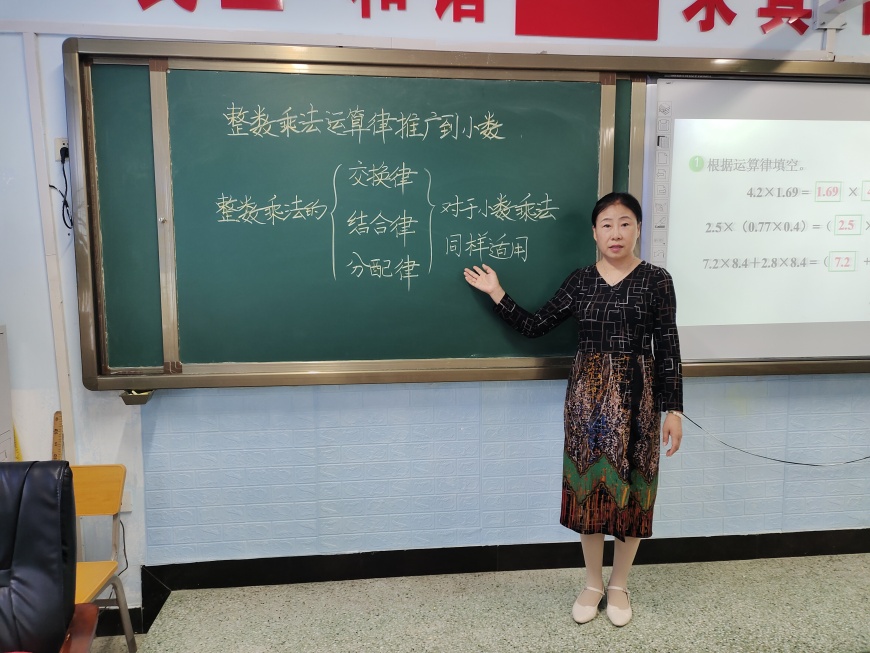 和谐
求真
整数乘法运算律推广到小数
整数乘法的
交换律
结合律
分配律
对于小数乘法
同样适用
1 根据运算律填空。
4.2×1.69= 1.69 ×
2.5×（0.77×0.4）=（ 2.5
7.2×8.4+2.8×8.4=（ 7.2 +